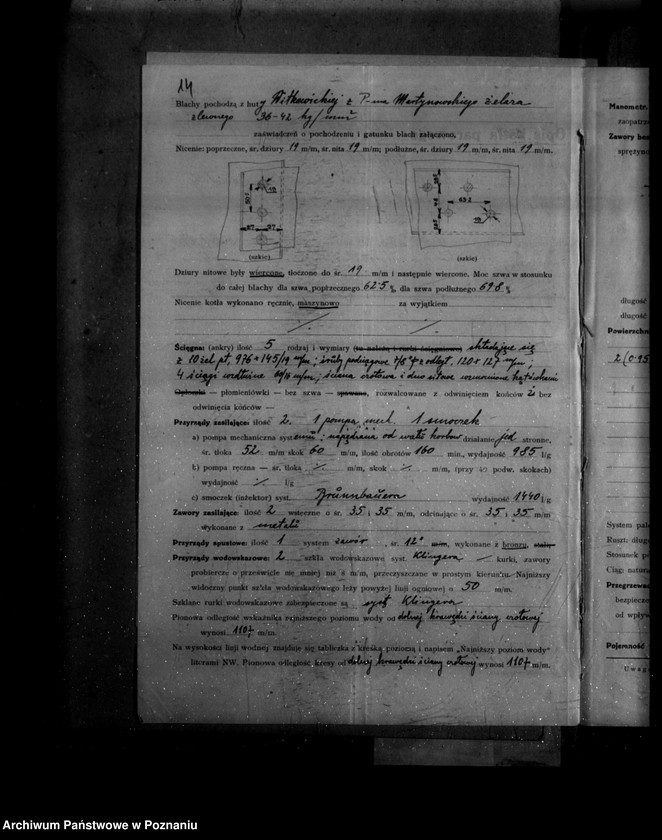 14
Blachy pochodzą z huty Witkowickiej z P-wa Martynowskiego żelaza
zlewnego 36-42 kg/mm²
zaświadczeń o pochodzeniu i gatunku blach załączono.
Nicenie: poprzeczne, śr. dziury 19 m/m, śr. nita 19 m/m; podłużne, śr. dziury 19 m/m, śr. nita 19 m/m.
(szkic) (szkic)
Dziury nitowe były wiercone, tłoczone do śr. 19 m/m i następnie wiercone. Moc szwa w stosunku
do całej blachy dla szwa poprzecznego 62·5 %, dla szwa podłużnego 69.8 %
Nicenie kotła wykonano ręcznie, maszynowo za wyjątkiem
Ścięgna: (ankry) ilość 5 rodzaj i wymiary składające się
z 10 żel. pł. 976 × 145/19 m/m; śruby podciągowe
Opłomki — płomieniówki — bez szwa — spawane, rozwalcowane z odwinięciem końców i bez
odwinięcia końców —
Przyrządy zasilające: ilość 2. 1 pompa mech. 1 smoczek
a) pompa mechaniczna syst. napędzana od wału korbow. działanie jed stronne,
śr. tłoka 52 m/m skok 60 m/m, ilość obrotów 160 min., wydajność 985 l/g
b) pompa ręczna — śr. tłoka ⁒ m/m, skok ⁒ m/m, (przy podw. skokach)
wydajność ⁒ l/g
c) smoczek (inżektor) syst. wydajność 1440 l/g
Zawory zasilające: ilość 2 wsteczne o śr. 35 i 35 m/m, odcinające o śr. 35 i 35 m/m
wykonane z metalu
Przyrządy spustowe: ilość 1 system zawór, śr. m/m, wykonane z bronzu, stali.
Przyrządy wodowskazowe: 2 szkła wodowskazowe syst. Klingera kurki, zawory
probiercze o prześwicie nie mniej niż 8 m/m, przeczyszczane w prostym kierunku. Najniższy
widoczny punkt szkła wodowskazowego leży powyżej linji ogniowej o 50 m/m.
Szklane rurki wodowskazowe zabezpieczone są syst Klingera
Pionowa odległość wskaźnika najniższego poziomu wody od dolnej krawędzi ściany czołowej
wynosi 1107 m/m.
Na wysokości linji wodnej znajduje się tabliczka z kreską poziomą i napisem „Najniższy poziom wody"
literami NW. Pionowa odległość kresy od dolnej krawędzi ściany czołowej wynosi 1107 m/m.
Manometr.
zaopatrz
Zawory bez
sprężyno
długość
długość
Powierzchn
2(0·95
System pale
Ruszt: dług
Stosunek p
Ciąg: natura
Przegrzewa
bezpiecze
od wpływ
Pojemność
Uwag
Archiwum Państwowe w Poznaniu